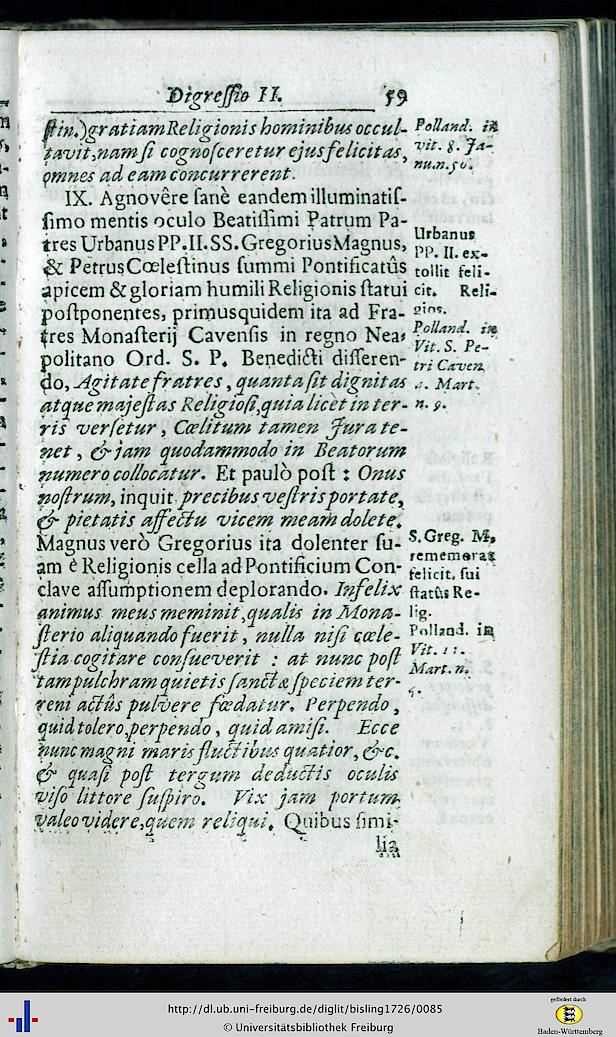 Digreſſio II. 59
ſtin.) gratiam Religionis hominibus occul-
tavit, nam ſi cognoſceretur ejus felicitas,
omnes ad eam concurrerent.
IX. Agnovêre ſanè eandem illuminatiſ-
ſimo mentis oculo Beatiſſimi Patrum Pa-
tres Urbanus PP. II. SS. Gregorius Magnus,
& Petrus Cœleſtinus ſummi Pontificatûs
apicem & gloriam humili Religionis ſtatui
poſtponentes, primusquidem ita ad Fra-
tres Monaſterij Cavenſis in regno Nea-
politano Ord. S. P. Benedicti diſſeren-
do, Agitate fratres, quanta ſit dignitas
atque majeſtas Religioſi, quia licèt in ter-
ris verſetur, Cœlitum tamen Jura te-
net, & jam quodammodo in Beatorum
numero collocatur. Et paulò poſt : Onus
noſtrum, inquit precibus veſtris portate,
& pietatis affectu vicem meam dolete.
Magnus verò Gregorius ita dolenter ſu-
am è Religionis cella ad Pontificium Con-
clave aſſumptionem deplorando. Infelix
animus meus meminit, qualis in Mona-
ſterio aliquando fuerit, nulla niſi cœle-
ſtia cogitare conſueverit : at nunc poſt
tam pulchram quietis ſanctæ ſpeciem ter-
reni actûs pulvere fœdatur. Perpendo,
quid tolero, perpendo, quid amiſi. Ecce
nunc magni maris fluctibus quatior, &c.
& quaſi poſt tergum deductis oculis
viſo littore ſuſpiro. Vix jam portum
valeo videre, quem reliqui. Quibus ſimi-
lia
Polland. in
vit. 8. Ja-
nu. n. 50.
Urbanus
PP. II. ex-
tollit feli-
cit. Reli-
gios.
Polland. in
Vit. S. Pe-
tri Caven.
4. Mart.
n. 9.
S. Greg. M.
rememorat
felicit. ſui
ſtatûs Re-
lig.
Polland. in
Vit. 11.
Mart. n.
5.
http://dl.ub.uni-freiburg.de/diglit/bisling1726/0085
© Universitätsbibliothek Freiburg
gefördert durch
Baden-Württemberg